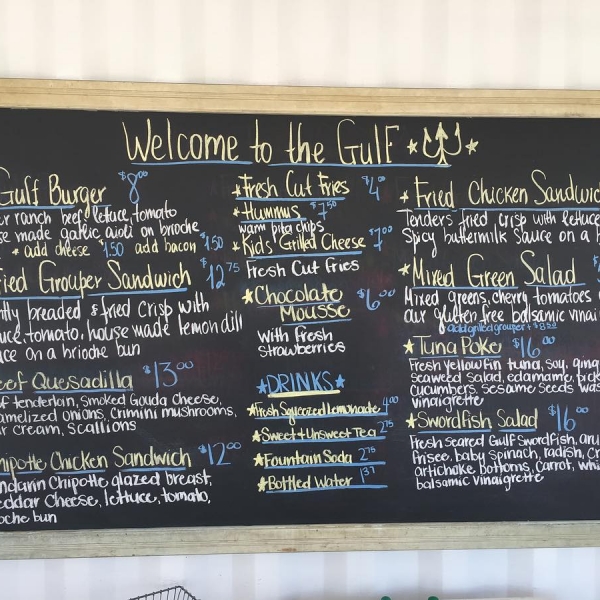 Welcome to the Gulf
Gulf Burger $8.00
ranch beef, lettuce, tomato
made garlic aioli on brioche
* add cheese $1.50 add bacon $1.50
Grouper Sandwich $12.75
breaded & fried crisp with
tomato, house made lemon dill
on a brioche bun
Quesadilla $13.00
tenderloin, smoked Gouda cheese,
onions, crimini mushrooms,
cream, scallions
Chicken Sandwich $12.00
Chipotle glazed breast,
cheese, lettuce, tomato,
bun
Fresh Cut Fries $4.00
Hummus $7.50
warm pita chips
Kids' Grilled Cheese $7.00
Fresh Cut Fries
Chocolate
Mousse $6.00
with fresh
strawberries
DRINKS
Fresh Squeezed Lemonade 4.00
Sweet + Unsweet Tea 2.75
Fountain Soda 2.75
Bottled Water 1.37
Fried Chicken
Tenders fried crisp with
Spicy buttermilk Sauce on a
Mixed Green Salad
Mixed greens, cherry tomatoes
our gluten free balsamic
add grilled grouper + $8.50
Tuna Poke $16.00
Fresh yellowfin tuna, soy,
seaweed salad, edamame,
cucumbers, sesame seeds
vinaigrette
Swordfish Salad $16.00
Fresh seared Gulf swordfish,
frisee, baby spinach, radish,
artichoke bottoms, carrot,
balsamic vinaigrette